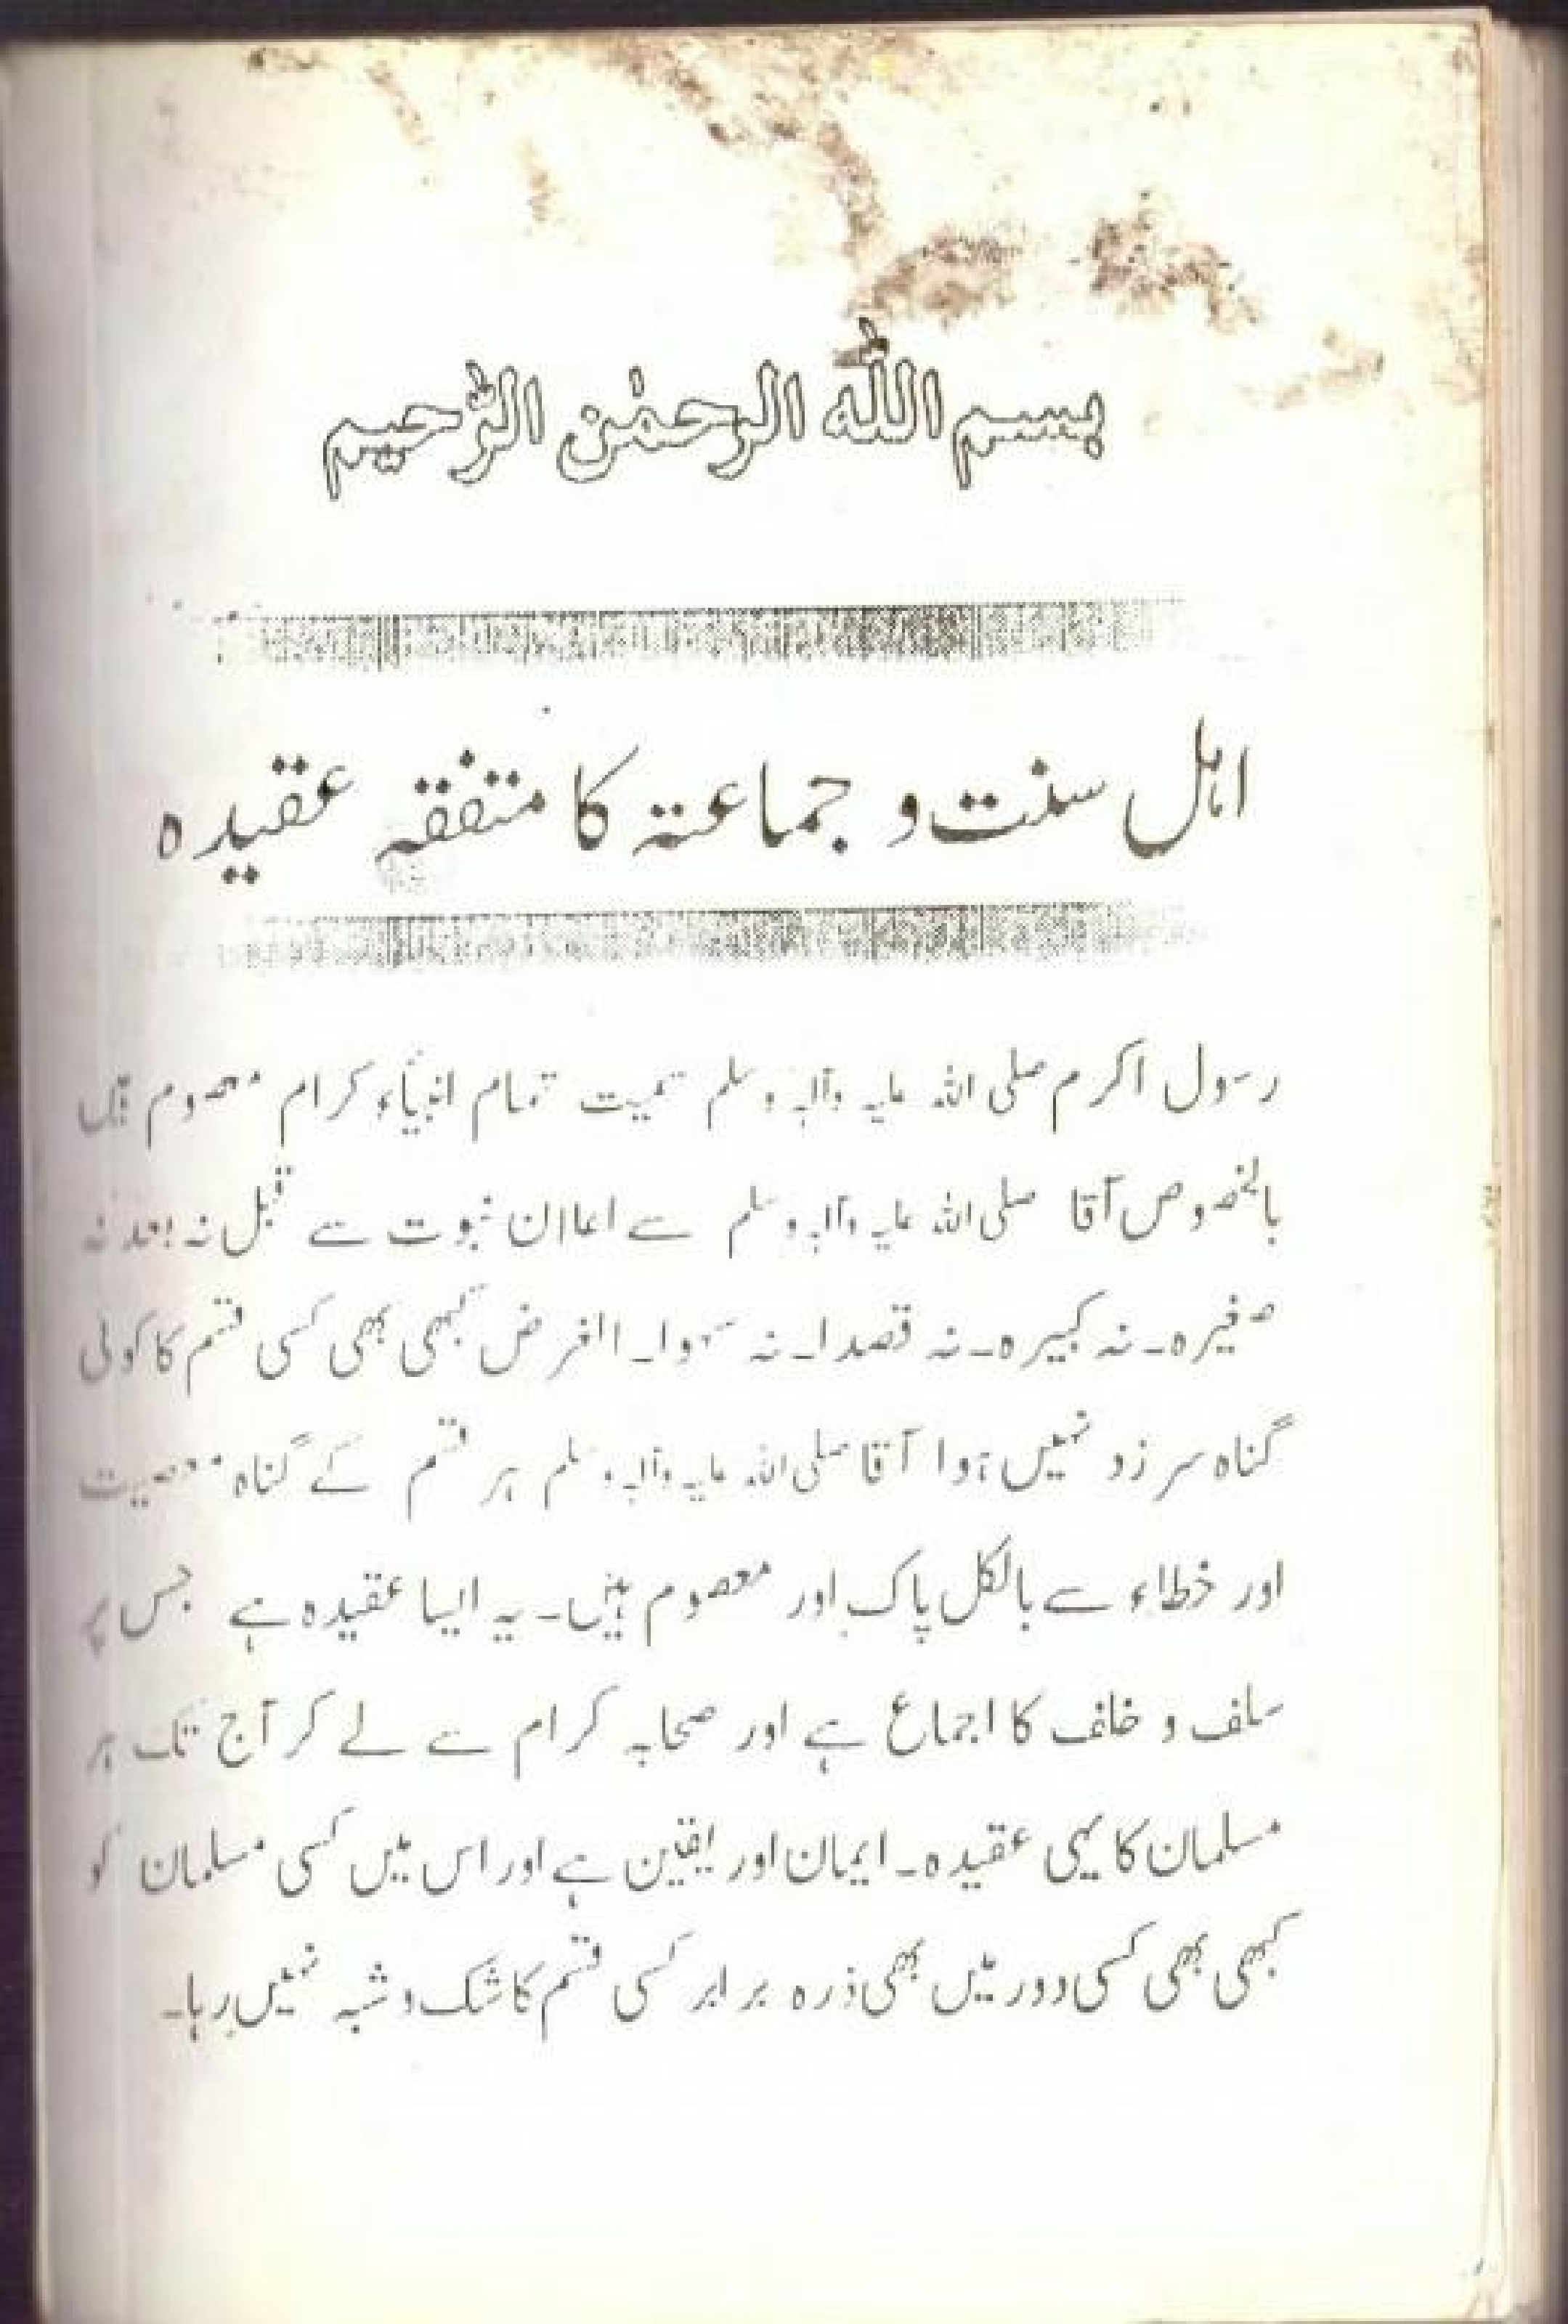 بسم اللہ الرحمٰن الرّحیم
اہل سنت و جماعۃ کا متفقہ عقیدہ
رسول اکرم صلی اللہ علیہ وآلہ وسلم سمیت تمام انبیاء کرام معصوم ہیں
بالخصوص آقا صلی اللہ علیہ وآلہ وسلم سے اعلان نبوت سے قبل نہ بعد نہ
صغیرہ۔ نہ کبیرہ۔ نہ قصدا۔ نہ سہوا۔ الغرض کبھی بھی کسی قسم کا کوئی
گناہ سرزد نہیں ہوا آقا صلی اللہ علیہ وآلہ وسلم ہر قسم کے گناہ معصیت
اور خطاء سے بالکل پاک اور معصوم ہیں۔ یہ ایسا عقیدہ ہے جس پر
سلف و خلف کا اجماع ہے اور صحابہ کرام سے لے کر آج تک ہر
مسلمان کا یہی عقیدہ۔ ایمان اور یقین ہے اور اس میں کسی مسلمان کو
کبھی بھی کسی دور میں بھی ذرہ برابر کسی قسم کا شک و شبہ نہیں رہا۔